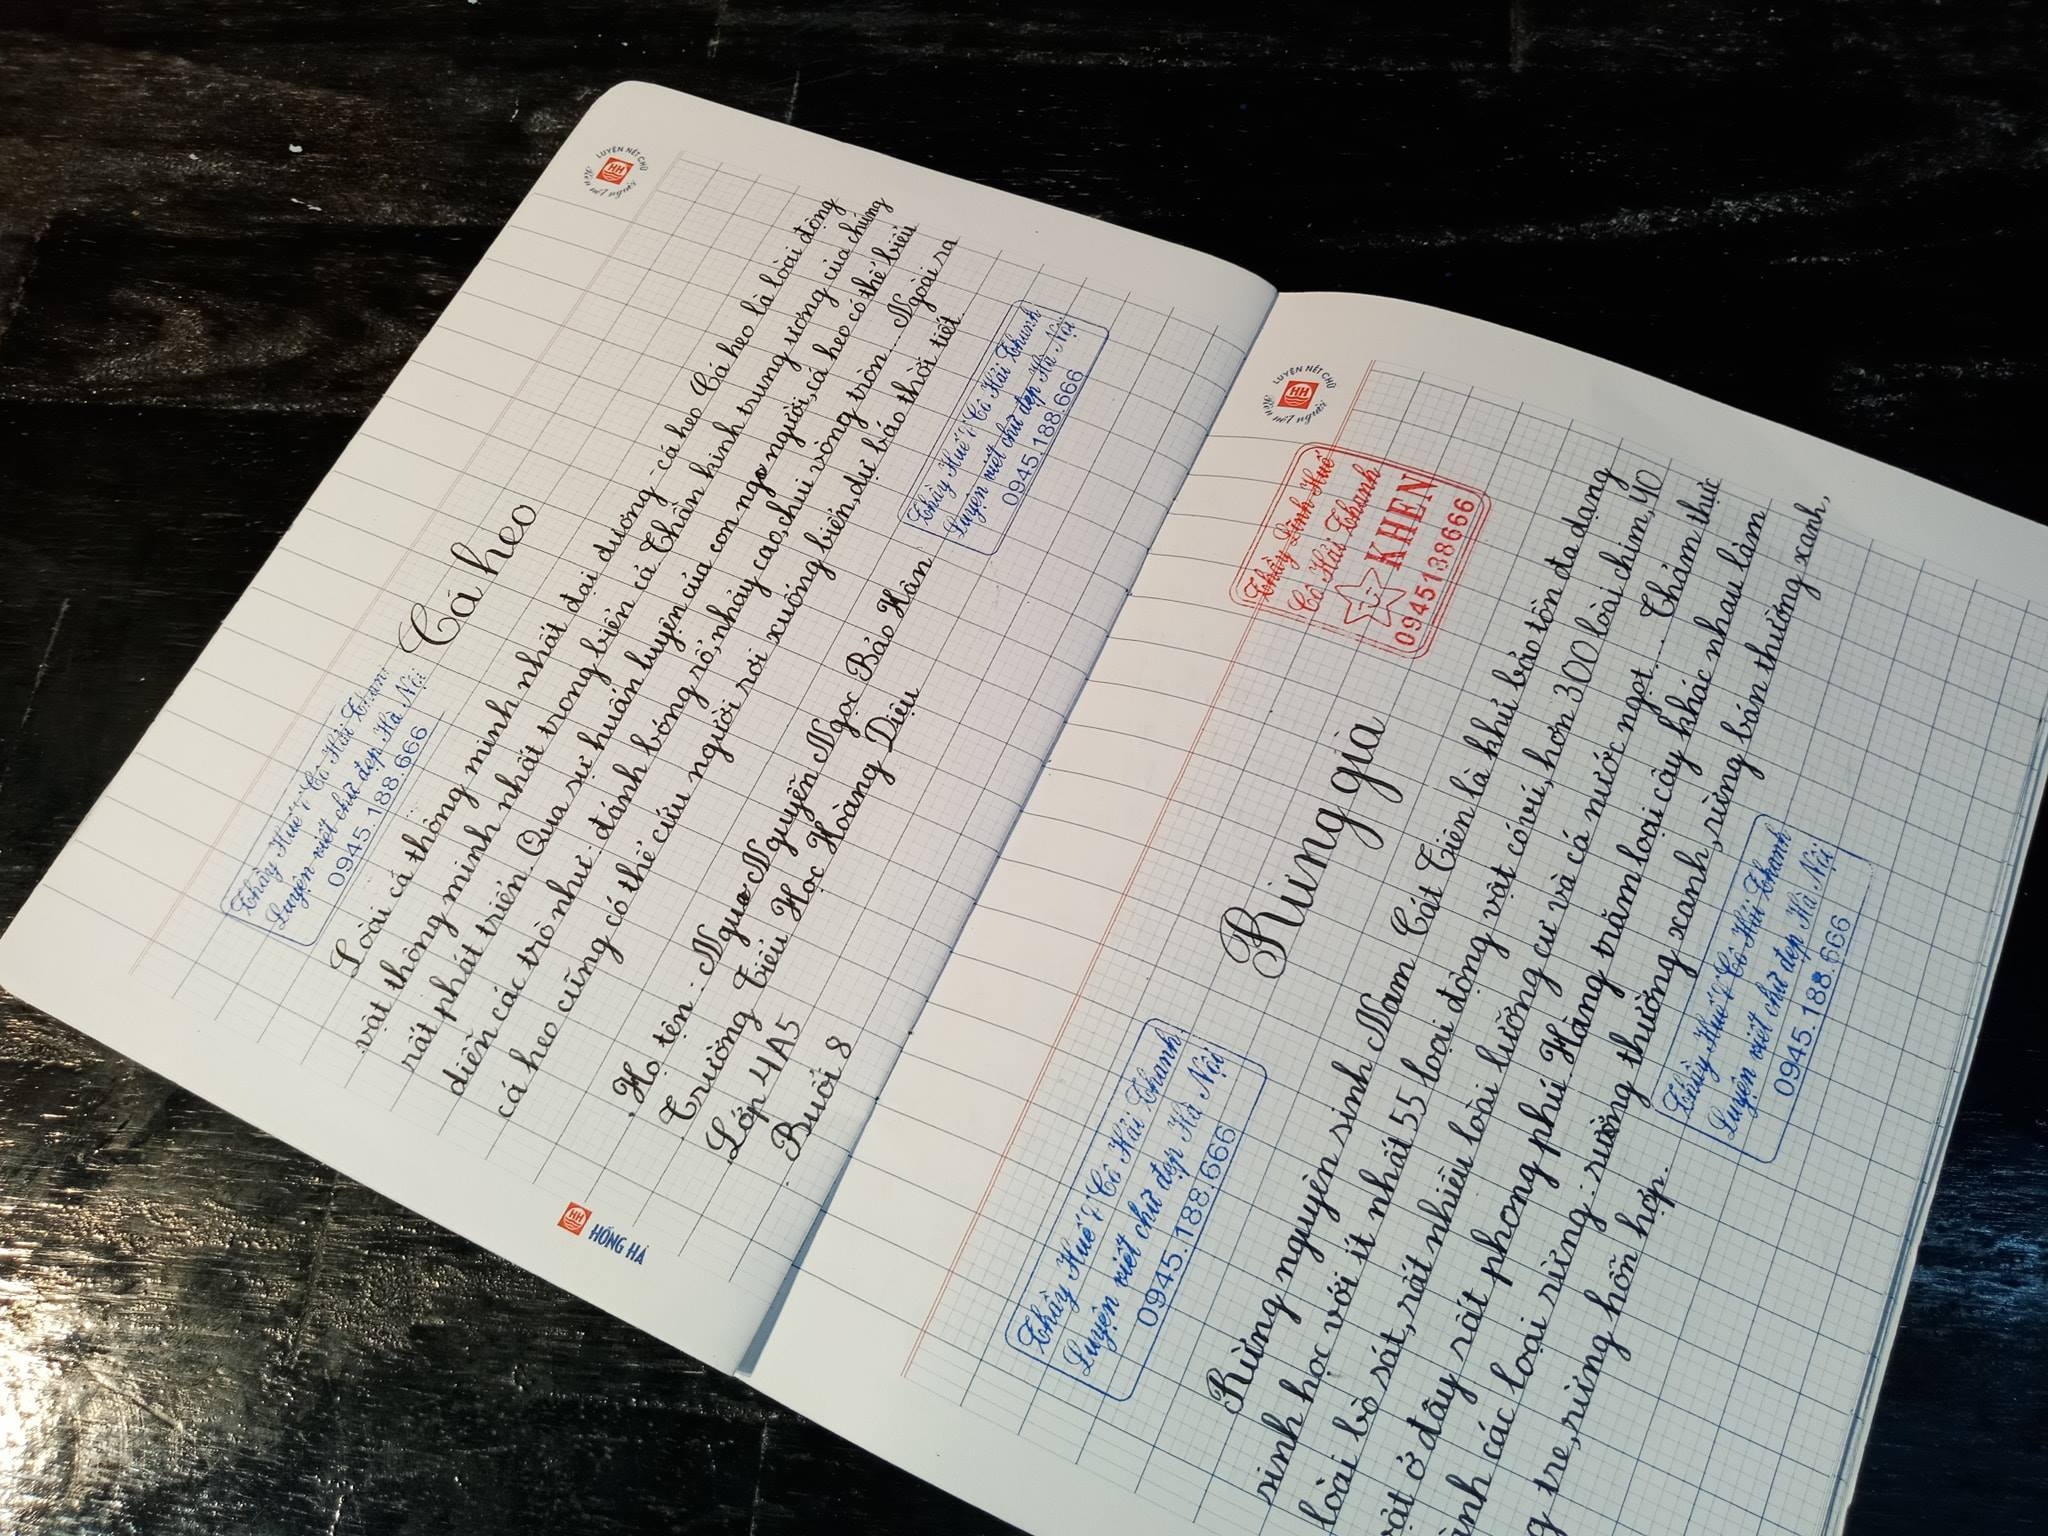 LUYỆN NÉT CHỮ
Rèn nết người
Cá heo
Thầy Huế & Cô Hải Than
Luyện viết chữ đẹp Hà Nội
0945.188.666
Loài cá thông minh nhất đại dương - cá heo Cá heo là loài động
vật thông minh nhất trong biển cả Thần kinh trung ương của chúng
rất phát triển. Qua sự huấn luyện của con ngo người, cá heo có thể biểu
diễn các trò như: đánh bóng rổ, nhảy cao, chui vòng tròn... Ngoài ra
cá heo cũng có thể cứu người rơi xuống biển, dự báo thời tiết
Thầy Huế & Cô Hải Thanh
Luyện viết chữ đẹp Hà Nội
0945.188.666
Họ tên: Nguyễn Ngọc Bảo Hân
Trường Tiểu Học Hoàng Diệu
Lớp 4A5
Buổi 8
HỒNG HÀ
LUYỆN NÉT CHỮ
Rèn nết người
Thầy Đình Huế
Cô Hải Thanh
KHEN
0945188666
Rừng già
Thầy Huế & Cô Hải Thanh
Luyện viết chữ đẹp Hà Nội
0945.188.666
Rừng nguyên sinh Nam Cát Tiên là khu bảo tồn đa dạng
sinh học với ít nhất 55 loại động vật có vú, hơn 300 loài chim, 40
loài bò sát, rất nhiều loài lưỡng cư và cá nước ngọt.... Thảm thực
vật ở đây rất phong phú. Hàng trăm loại cây khác nhau làm
ành các loại rừng: rừng thường xanh, rừng bán thường xanh,
g tre, rừng hỗn hợp.
Thầy Huế & Cô Hải Thanh
Luyện viết chữ đẹp Hà Nội
0945.188.666